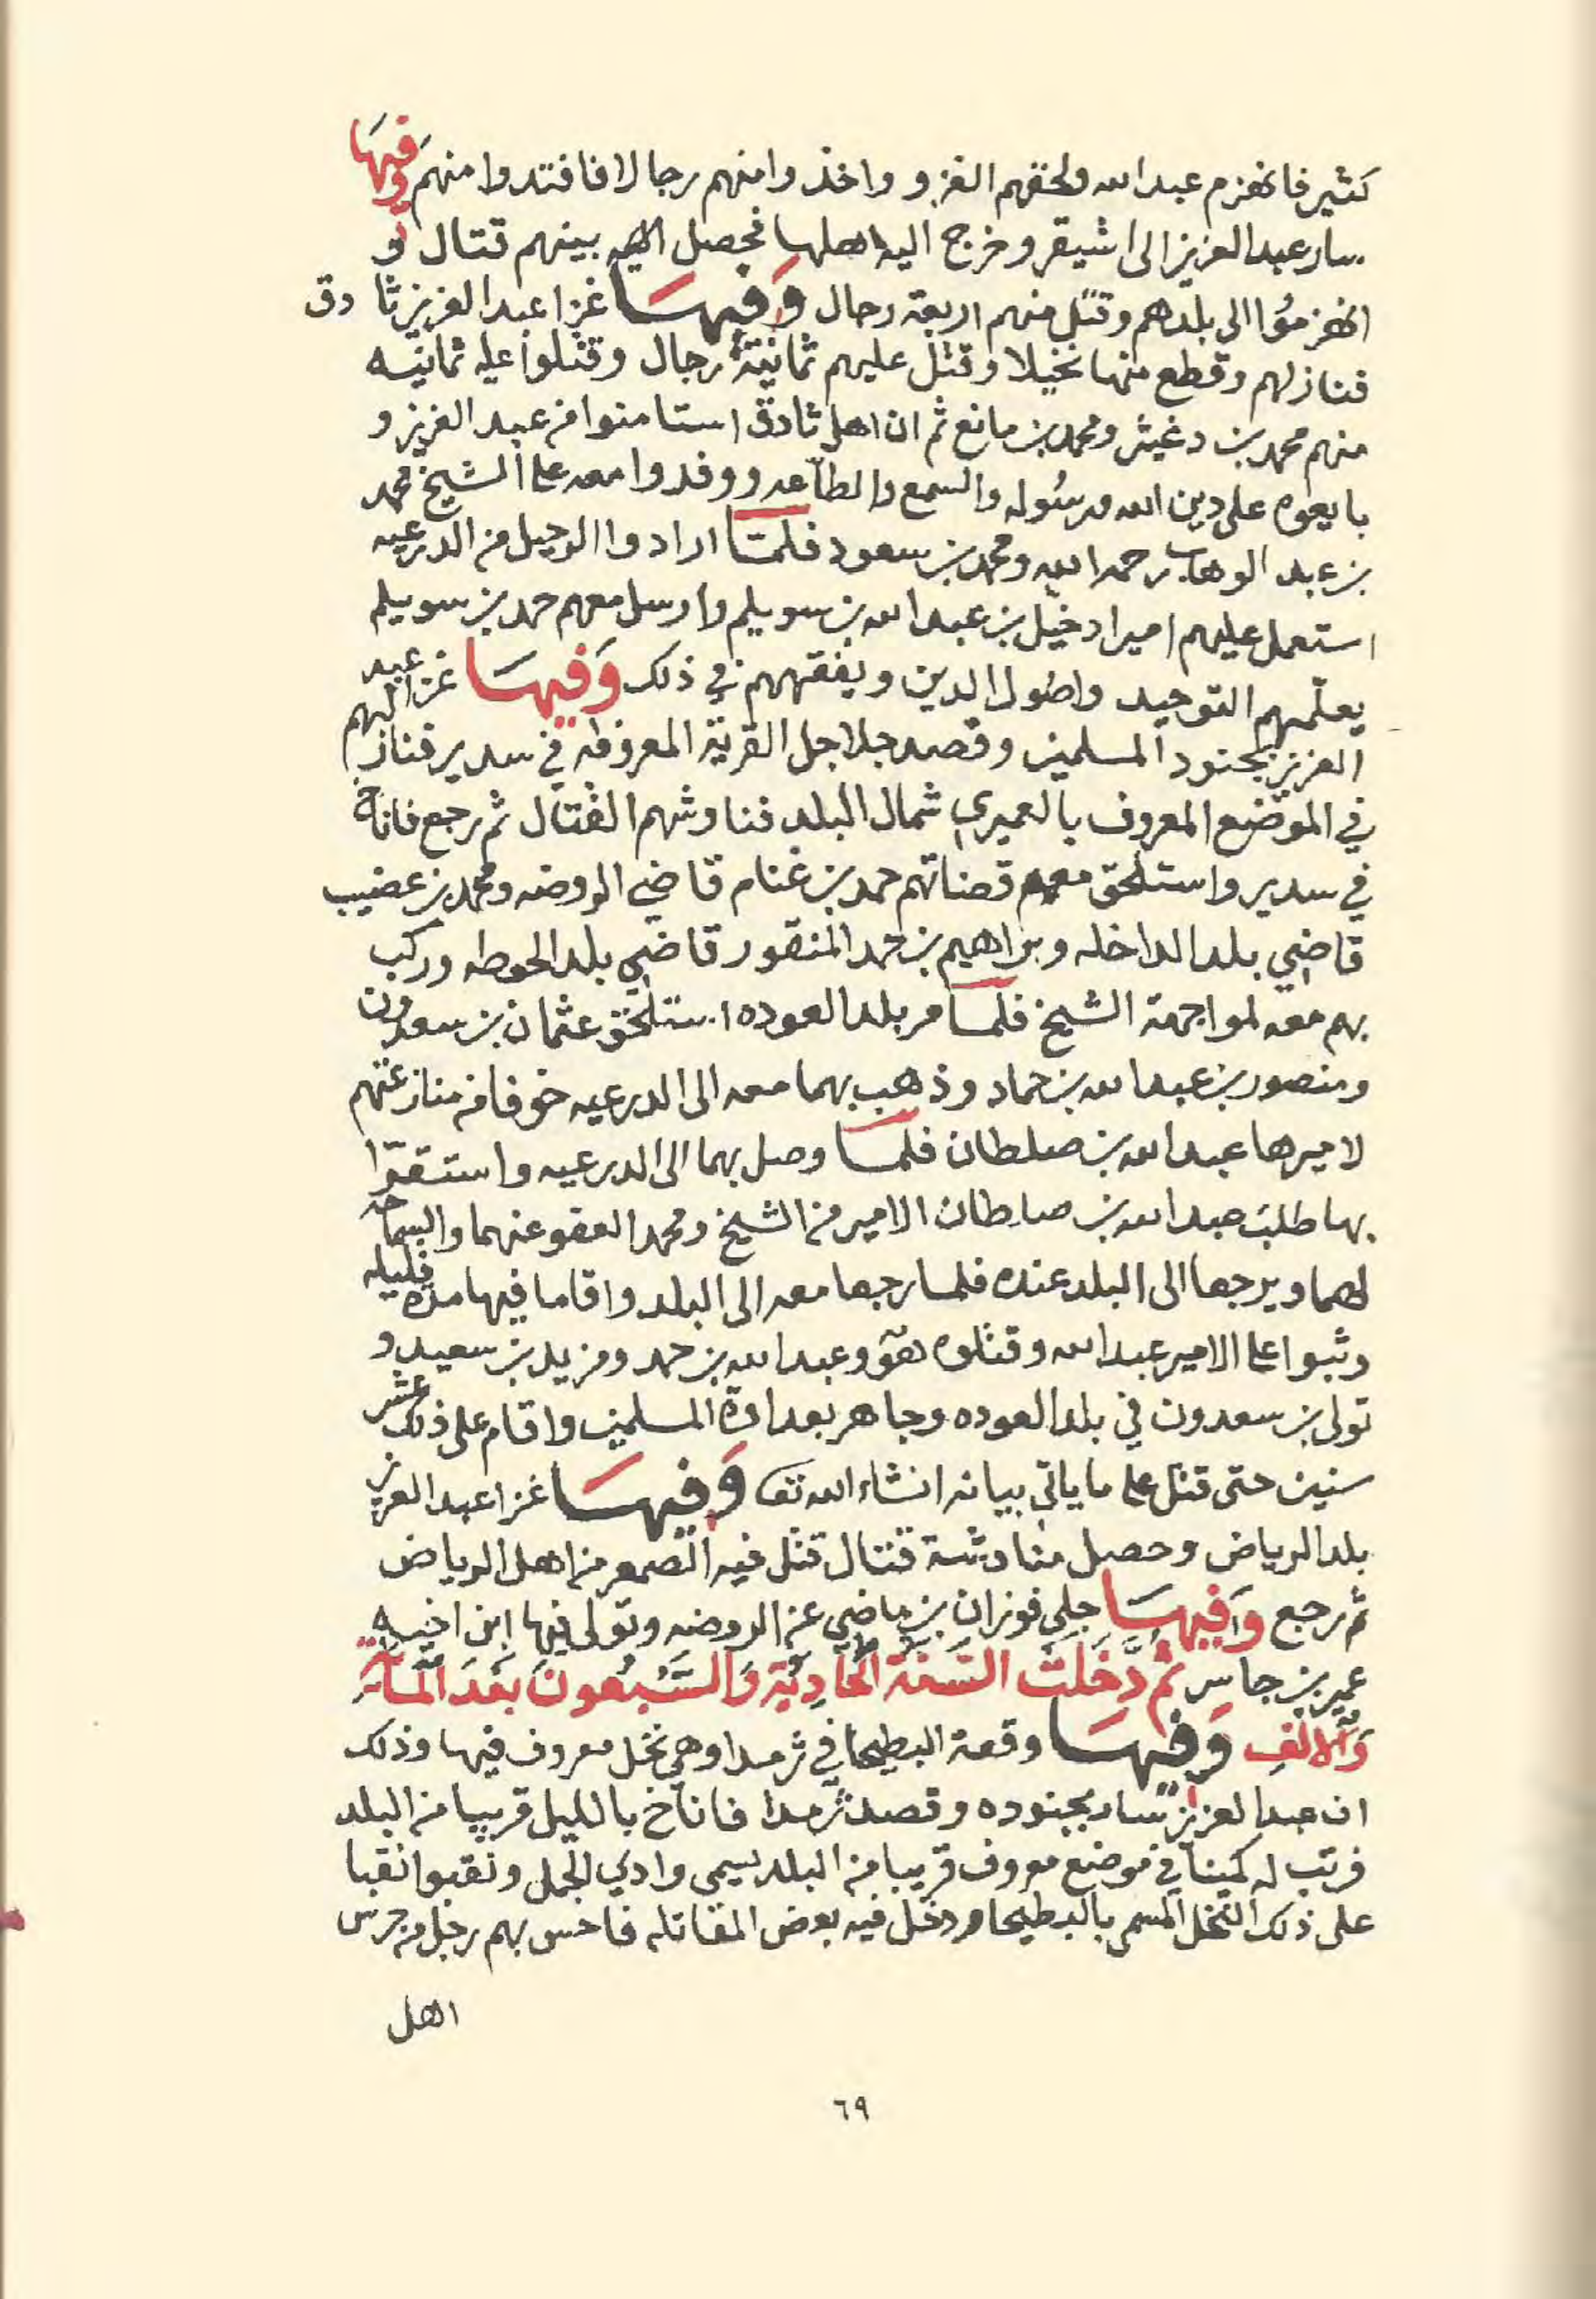 كثير فانهزم عبد الله ولحقهم الغزو واخذوا منهم رجالا فافتدوا منهم وفيها
سار عبد العزيز الى اشيقر وخرج اليه اهلها فحصل بينهم قتال و
انهزموا الى بلدهم وقتل منهم اربعة رجال وفيها غزا عبد العزيز ثادق
فنازلهم وقطع منها نخيلا وقتل عليهم ثمانية رجال وقتلوا عليه ثمانيه
منهم محمد بن دغيثر ومحمد بن مانع ثم ان اهل ثادق استامنوا من عبد العزيز و
بايعوه على دين الله ورسوله والسمع والطاعه ووفدوا معه على الشيخ محمد
بن عبد الوهاب رحمه الله ومحمد بن سعود فلما ارادوا الرحيل من الدرعيه
استعمل عليهم اميرا دخيل بن عبد الله بن سويلم وارسل معهم حمد بن سويلم
يعلمهم التوحيد واصول الدين ويفقههم في ذلك وفيها غزا عبد
العزيز بجنود المسلمين وقصد جلاجل القرية المعروفه في سدير فنازلهم
في الموضع المعروف بالعميري شمال البلد فناوشهم القتال ثم رجع فاناخ
في سدير واستلحق معهم قضاتهم حمد بن غنام قاضي الروضه ومحمد بن عضيب
قاضي بلد الداخله وبراهيم بن حمد المنقور قاضي بلد الحوطه وركب
بهم معه لمواجهة الشيخ فلما مر بلد العوده استلحق عثمان بن سعدون
ومنصور بن عبد الله بن حماد وذهب بهما معه الى الدرعيه خوفا من منازعتهم
لاميرها عبد الله بن صلطان فلما وصل بهما الى الدرعيه واستقوا
بها طلب عبد الله بن صلطان الامير من الشيخ ومحمد العفو عنهما والسماحه
لهما ويرجعا الى البلد عنده فلما رجعا معه الى البلد واقاما فيها مده قليله
وثبوا على الامير عبد الله وقتلوه هو وعبد الله بن حمد ومزيد بن سعيد و
تولى بن سعدون في بلد العوده وجاهر بعداوة المسلمين واقام على ذلك عشر
سنين حتى قتل على ما ياتي بيانه انشاء الله تعا وفيها غزا عبد العزيز
بلد الرياض وحصل مناوشة قتال قتل فيه الصمعر من اهل الرياض
ثم رجع وفيها جلي فوزان بن ماضي عن الروضه وتولى فيها ابن اخيه
عمير بن جاسر ثُمَّ دَخَلَتْ السَّنَة الحَادِيَة وَالسَّبْعُونَ بَعْدَ المَائَة
وَالالفِ وَفِيهَا وقعة البطيحا في ثرمدا وهي نخل معروف فيها وذلك
ان عبد العزيز سار بجنوده وقصد ثرمدا فاناخ بالليل قريبا من البلد
فرتب له كمينا في موضع معروف قريبا من البلد يسمى وادي الجمل ونقبوا نقبا
على ذلك النخل المسمى بالبطيحا ودخل فيه بعض المقاتله فاحس بهم رجل من حرس
اهل
٦٩